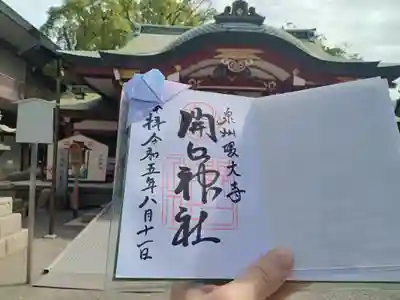 泉州堺大寺
開口神社
奉拝 令和五年八月十一日